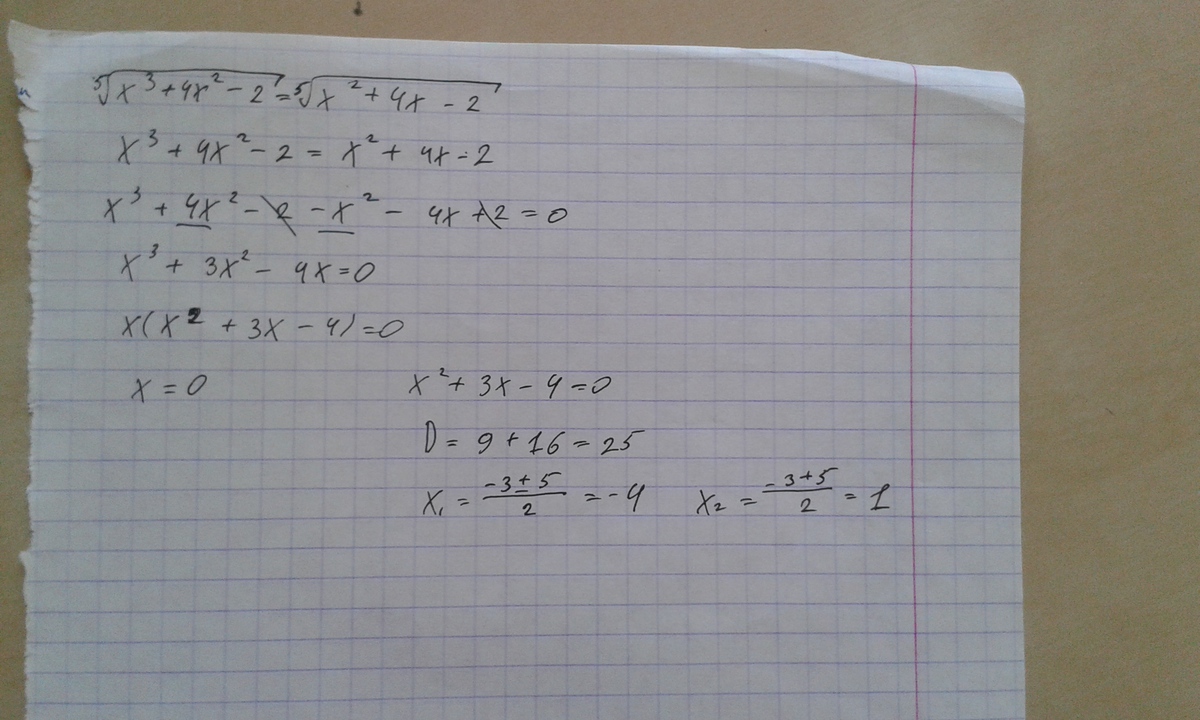 ⁵√(x³ + 4x² - 2) = ⁵√(x² + 4x - 2)
x³ + 4x² - 2 = x² + 4x - 2
x³ + 4x² - 2 - x² - 4x + 2 = 0
x³ + 3x² - 4x = 0
x(x² + 3x - 4) = 0
x = 0 x² + 3x - 4 = 0
D = 9 + 16 = 25
x₁ = (-3 ± 5)/2 = -4 x₂ = (-3 + 5)/2 = 1